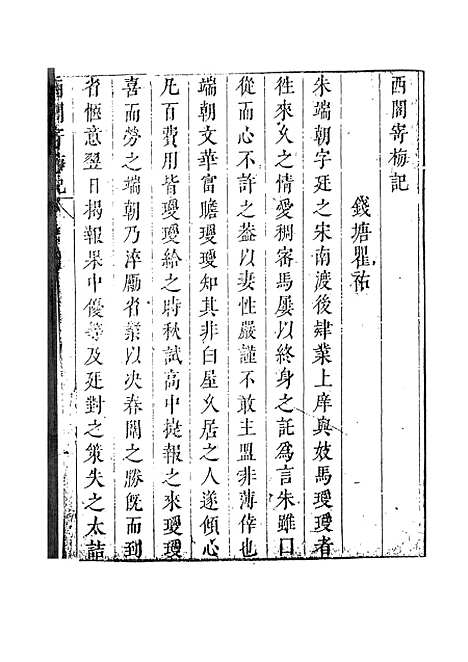 西閣寄梅記
錢塘瞿祐
朱端朝字廷之宋南渡後肄業上庠與妓馬瓊瓊者
徃來久之情愛稠宻馬屢以終身之託爲言朱雖口
從而心不許之葢以妻性嚴謹不敢主盟非薄倖也
端朝文華富贍瓊瓊知其非白屋久居之人遂傾心
凢百費用皆瓊瓊給之時秋試高中捷報之來瓊瓊
喜而勞之端朝乃淬勵省業以决春闈之勝旣而到
省愜意翌日揭報果中優等及廷對之策失之太詰
西閣寄梅記